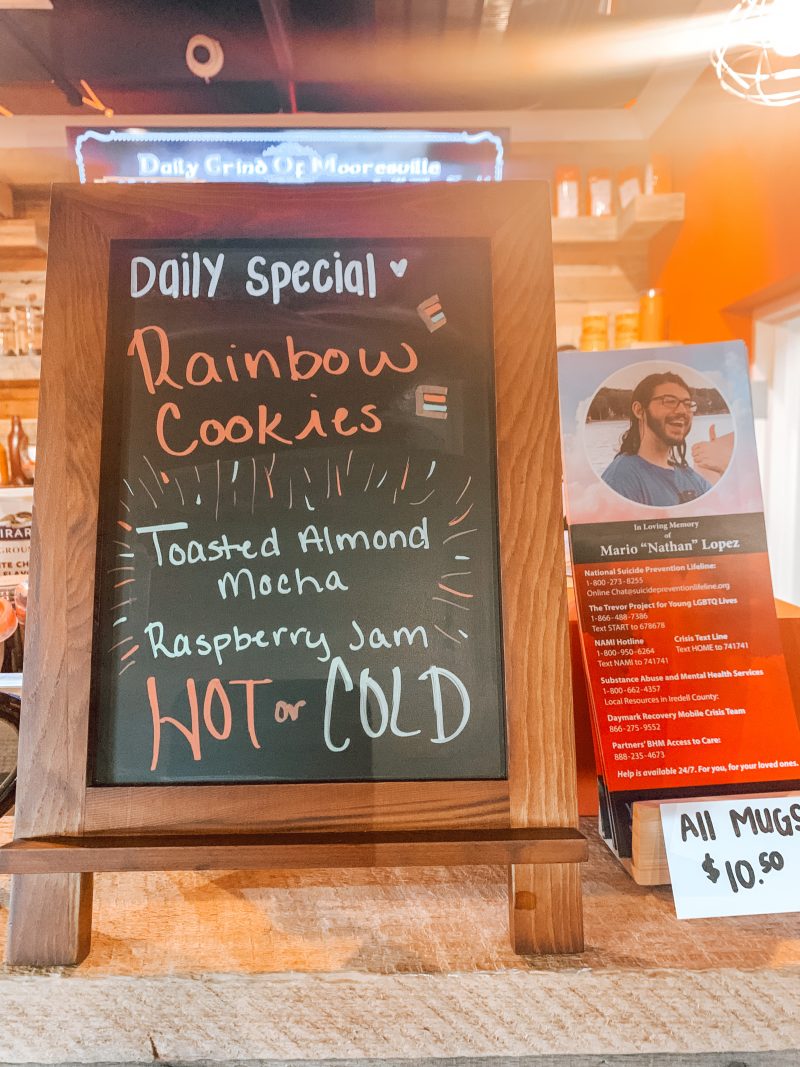 Daily Grind Of Mooresville
Daily Special
Rainbow
Cookies
Toasted Almond
Mocha
Raspberry Jam
HOT or COLD
In Loving Memory
of
Mario "Nathan" Lopez
National Suicide Prevention Lifeline:
1-800-273-8255
Online Chat@suicidepreventionlifeline.org
The Trevor Project for Young LGBTQ Lives
1-866-488-7386
Text START to 678678
NAMI Hotline
1-800-950-6264
Text NAMI to 741741
Crisis Text Line
Text HOME to 741741
Substance Abuse and Mental Health Services
1-800-662-4357
Local Resources in Iredell County:
Daymark Recovery Mobile Crisis Team
866-275-9552
Partners' BHM Access to Care:
888-235-4673
Help is available 24/7. For you, for your loved ones.
All MUGS
$10.50